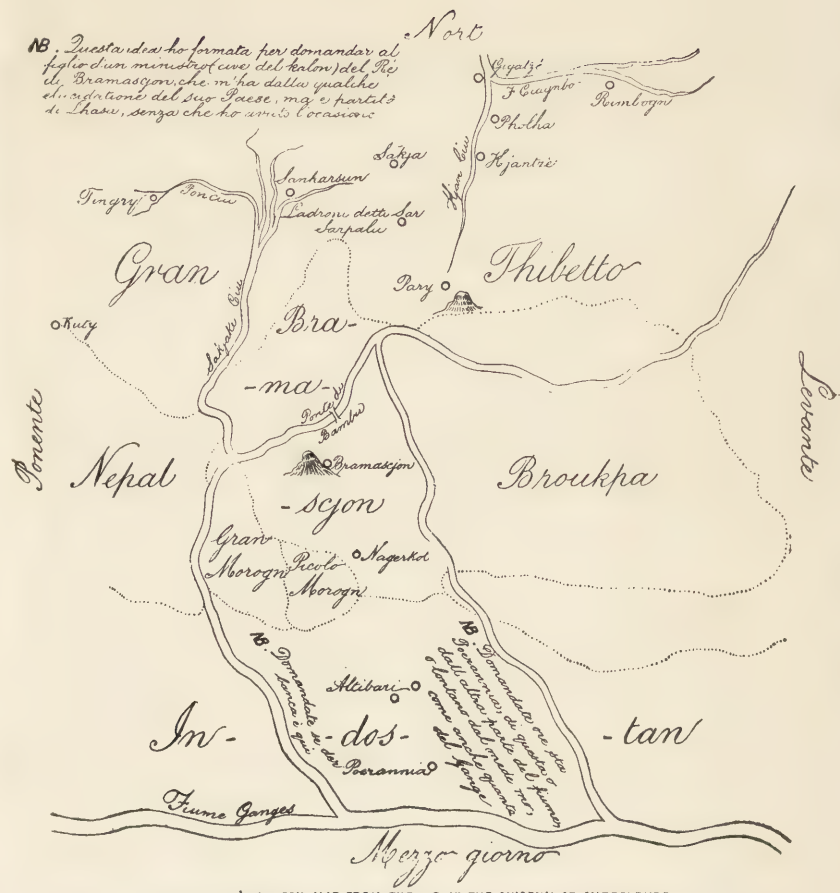 Nort
NB. Questa idea ho formata per domandar al
figlio d'un ministro (cive del kalon) del Ré
di Bramascjon, che m'ha dalla qualche
elucidatione del suo Paese, ma e partito
di Lhasa, senza che ho l'ocasione
Gigatzé
F Ciaynbo
Rimbogn
Pholha
Sakja
Kjantzé
Kjan Ciu
Sankarsun
Tingry
Ponciu
Ladroni detti Sar
Sarpalu
Gran
Thibetto
Pary
Kuty
Bra-
Sakjake Ciu
-ma-
Ponte di
Bambu
Ponente
Levante
Nepal
Bramascjon
Broukpa
-scjon
Gran
Morogn
Picolo
Morogn
Nagerkol
NB. Domandate se der
banca è qui
NB. Domandate ove sta
Poerannia, di questa o
dall altra parte del fiume,
lontano dal mede mo,
come anche quanto
del Gange
Altibari
In-
-dos-
-tan
Poerannia
Fiume Ganges
Mezzo giorno